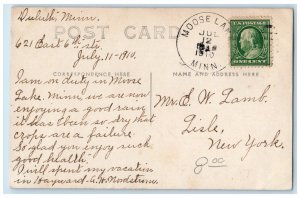 Duluth, Minn.
POST CARD
621 East 6th st.
July-11-1910.
CORRESPONDENCE HERE
NAME AND ADDRESS HERE
MOOSE LAKE
JUL
12
1910
MINN.
ONE CENT
I am on duty in Moose
Lake, Minn, we are now
enjoying a good rain
it has been so dry that
crops are a failure
So glad you enjoy such
good health.
I will spend my vacation
in Hayward- Nordstrom.
Mr. E. W. Lamb.
Lisle,
New York.
8 00